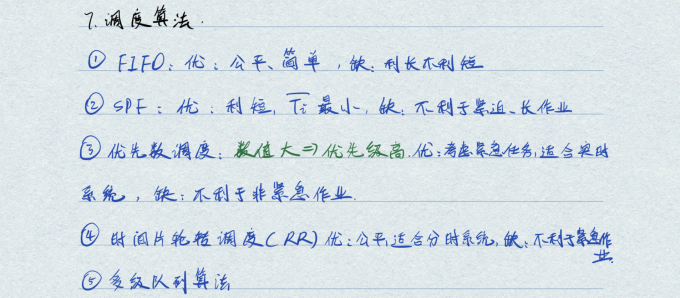 7. 调度算法.
① FIFO：优：公平、简单，缺：利长不利短
② SPF：优：利短，T̅i 最小，缺：不利于紧迫、长作业
③ 优先数调度：数值大⇒优先级高.优：考虑紧急任务,适合实时
系统，缺：不利于非紧急作业.
④ 时间片轮转调度(RR)优：公平,适合分时系统,缺：不利于紧急作
业.
⑤ 多级队列算法